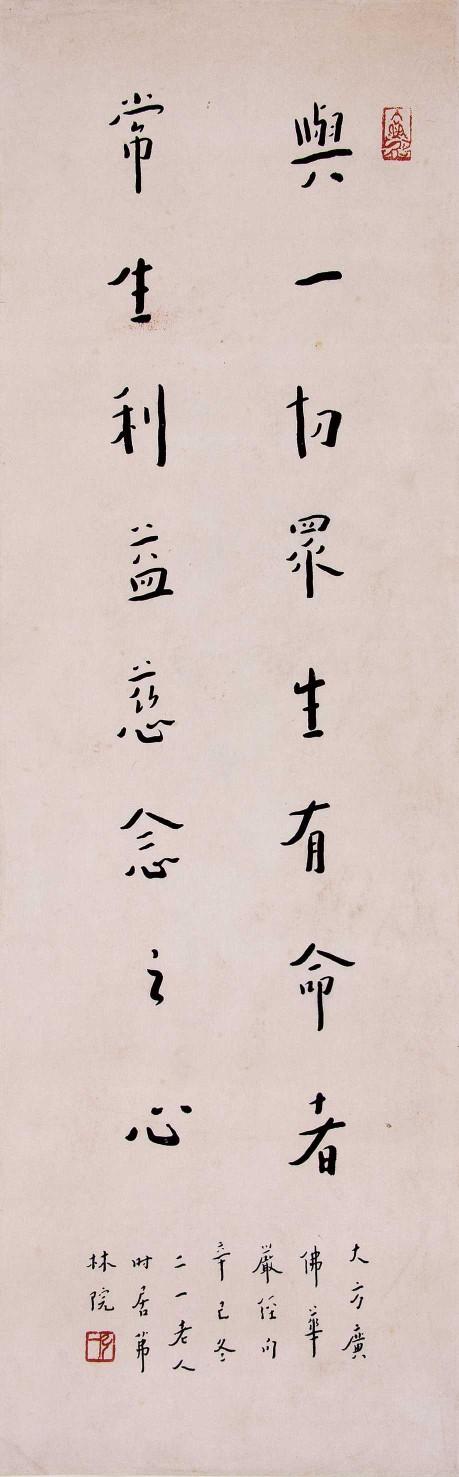 與一切眾生有命者
常生利益慈念之心
大方廣
佛華
嚴經句
辛巳冬
二一老人
時居茀
林院